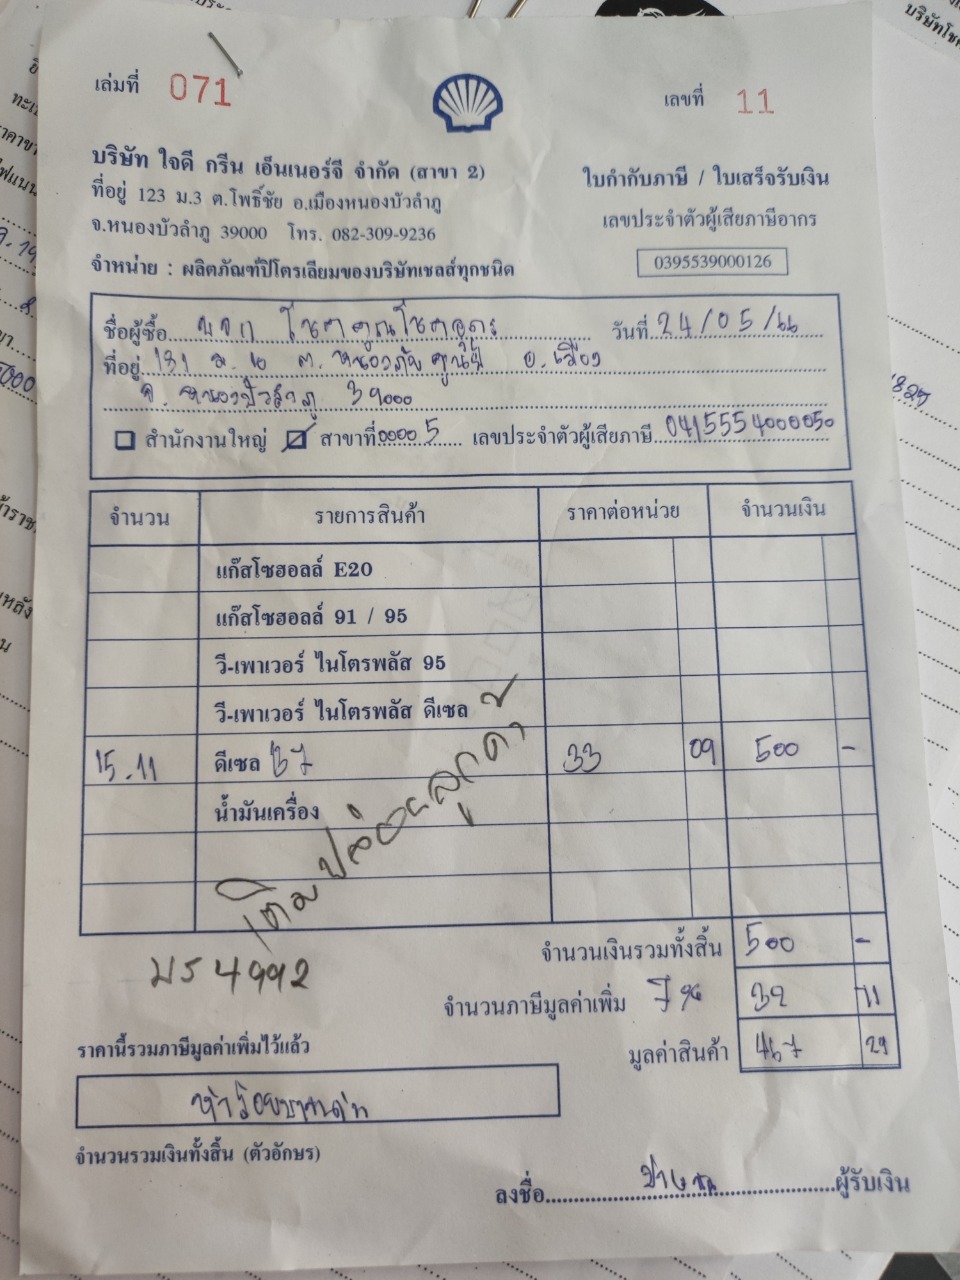 เล่มที่ 071
เลขที่ 11
บริษัท ใจดี กรีน เอ็นเนอร์จี จำกัด (สาขา 2)
ที่อยู่ 123 ม.3 ต.โพธิ์ชัย อ.เมืองหนองบัวลำภู
จ.หนองบัวลำภู 39000 โทร. 082-309-9236
จำหน่าย : ผลิตภัณฑ์ปิโตรเลียมของบริษัทเชลล์ทุกชนิด
ใบกำกับภาษี / ใบเสร็จรับเงิน
เลขประจำตัวผู้เสียภาษีอากร
0395539000126
ชื่อผู้ซื้อ บจก โชคคูณโชคอุดร วันที่ 24/05/66
ที่อยู่ 131 ม.2 ต.หนองภัย อ.เมือง
จ.หนองบัวลำภู 39000
สำนักงานใหญ่ สาขาที่ 00005 เลขประจำตัวผู้เสียภาษี 0415554000050
จำนวน รายการสินค้า ราคาต่อหน่วย จำนวนเงิน
แก๊สโซฮอลล์ E20
แก๊สโซฮอลล์ 91 / 95
วี-เพาเวอร์ ไนโตรพลัส 95
วี-เพาเวอร์ ไนโตรพลัส ดีเซล
15.11 ดีเซล B7 33 09 500 -
น้ำมันเครื่อง
เติมปล่อยลูกค้า
บร 4992
จำนวนเงินรวมทั้งสิ้น 500 -
จำนวนภาษีมูลค่าเพิ่ม 7% 32 71
มูลค่าสินค้า 467 29
ราคานี้รวมภาษีมูลค่าเพิ่มไว้แล้ว
ห้าร้อยบาทถ้วน
จำนวนรวมเงินทั้งสิ้น (ตัวอักษร)
ลงชื่อ ผู้รับเงิน